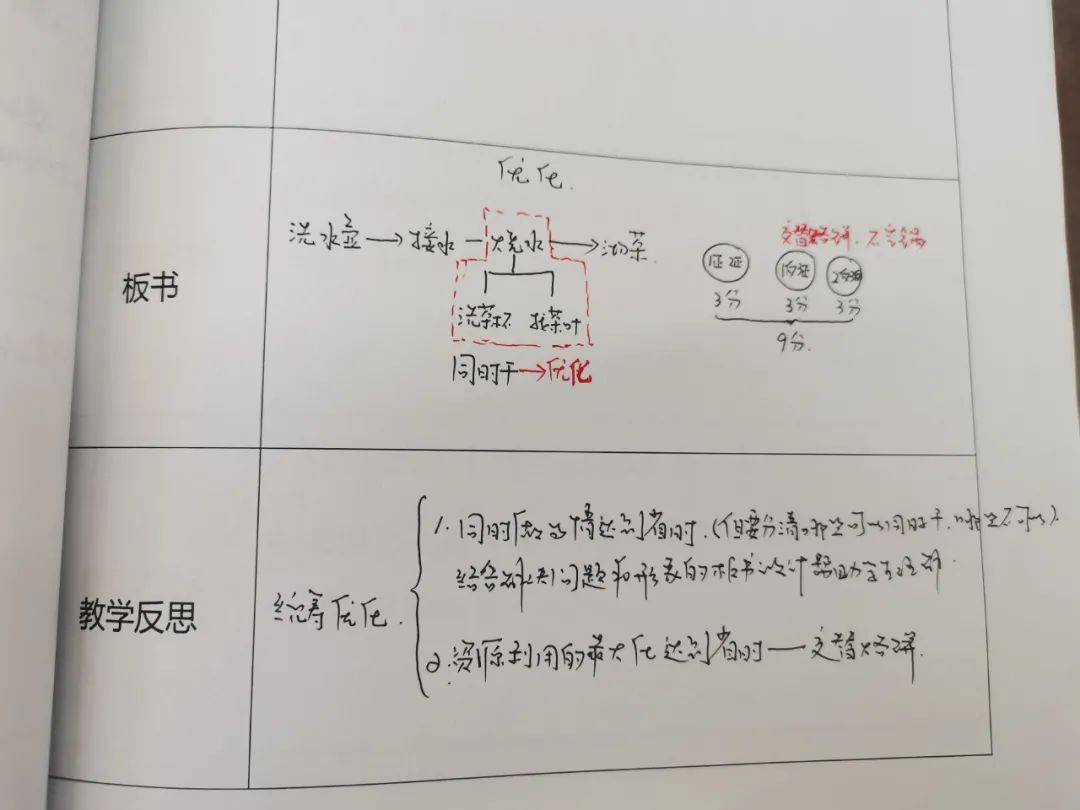 板书
优化.
洗水壶→接水—烧水→沏茶.
洗茶杯 找茶叶
同时干→优化
交替烙饼,不空锅
3分 3分 3分
9分.
教学反思
统筹优化.
1.同时做的事情达到省时.(但要分清哪些可以同时干,哪些不可以).
结合解决问题和形象的板书设计帮助学生理解.
2.资源利用的最大化达到省时——交替烙饼.